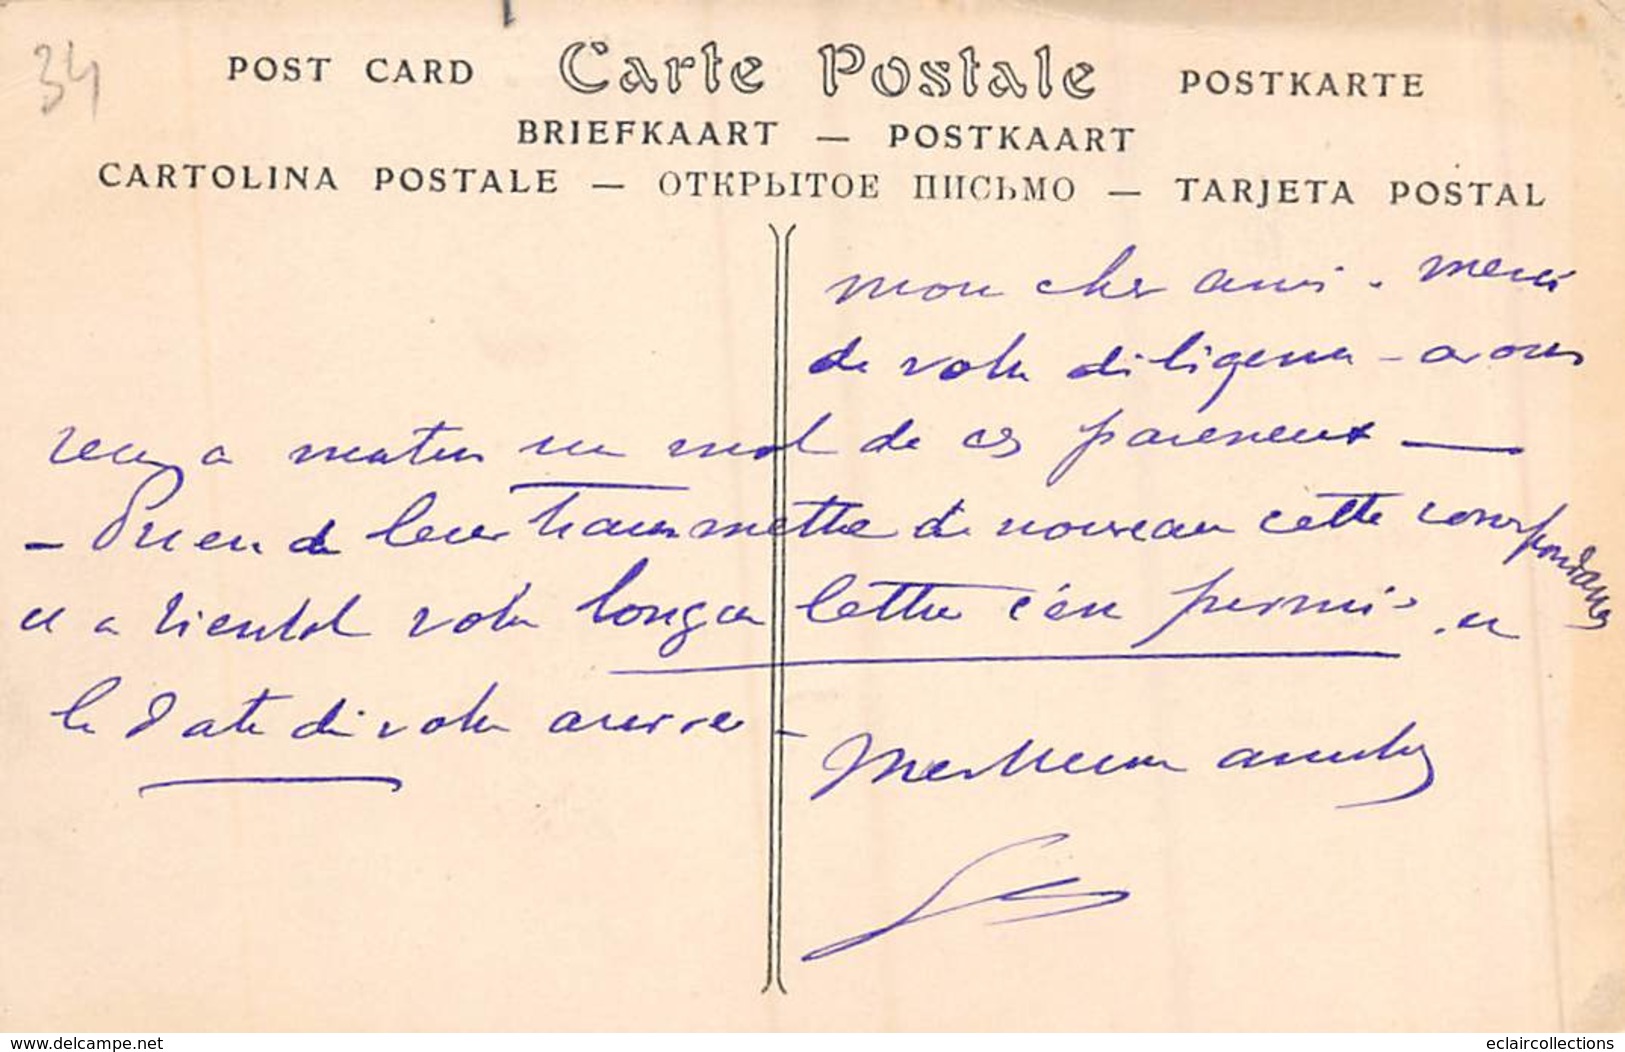 34
POST CARD Carte Postale POSTKARTE
BRIEFKAART — POSTKAART
CARTOLINA POSTALE — ОТКРЫТОЕ ПИСЬМО — TARJETA POSTAL
mon cher ami. merci
de votre diligence - avons
reçu ce matin un mot de ces
— Prière de leur transmettre de nouveau cette correspondance
et a bientot votre longue lettre c'en permis. et
la date de votre arrivée -
Meilleures amitiés
www.delcampe.net
eclaircollections